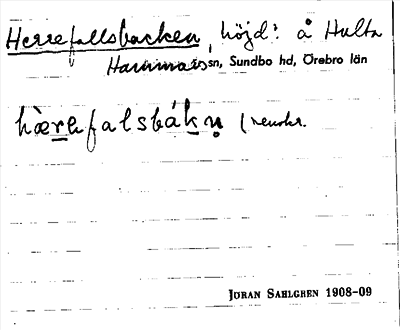 Herrefallsbacken, höjd: å Hulta
Hammars sn, Sundbo hd, Örebro län
hærefalsbákn (renskr.
JÖRAN SAHLGREN 1908-09